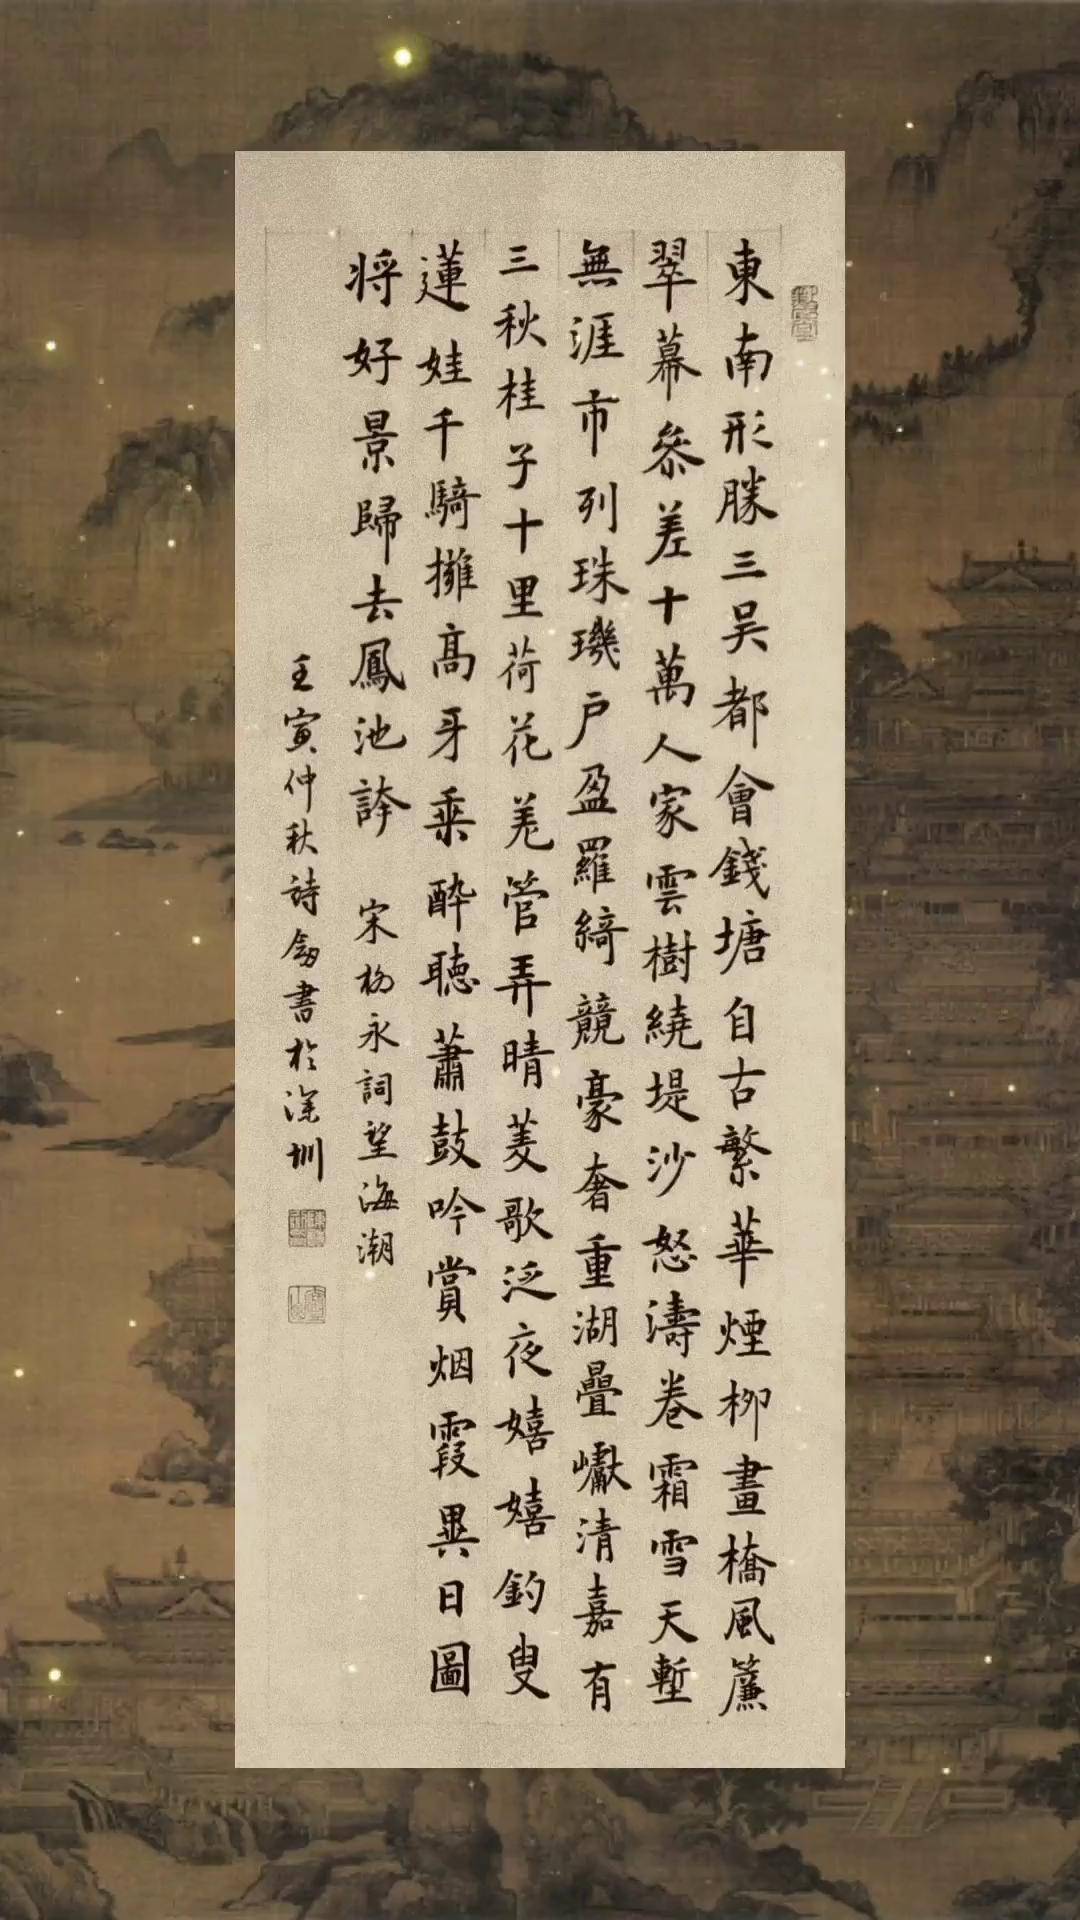 東南形勝三吳都會錢塘自古繁華煙柳畫橋風簾
翠幕參差十萬人家雲樹繞堤沙怒濤卷霜雪天塹
無涯市列珠璣户盈羅綺競豪奢重湖疊巘清嘉有
三秋桂子十里荷花羌管弄晴菱歌泛夜嬉嬉釣叟
蓮娃千騎擁高牙乘醉聽蕭鼓吟賞烟霞異日圖
将好景歸去鳳池誇 宋柳永詞望海潮
壬寅仲秋詩劔書於深圳